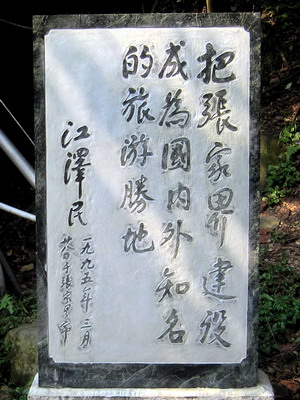 把張家界建设
成為國内外知名
的旅游勝地
江澤民
一九九五年三月
於張家界市